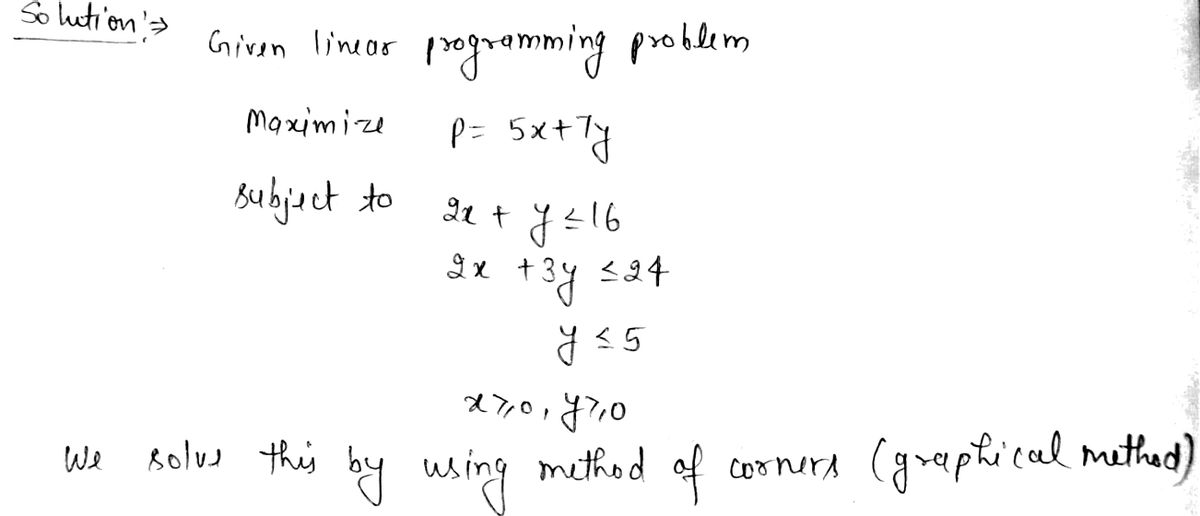 Solution:⇒
Given linear programming problem
Maximize P = 5x+7y
subject to 2x + y ≤ 16
2x + 3y ≤ 24
y ≤ 5
x ≥ 0, y ≥ 0
We solve this by using method of corners (graphical method)